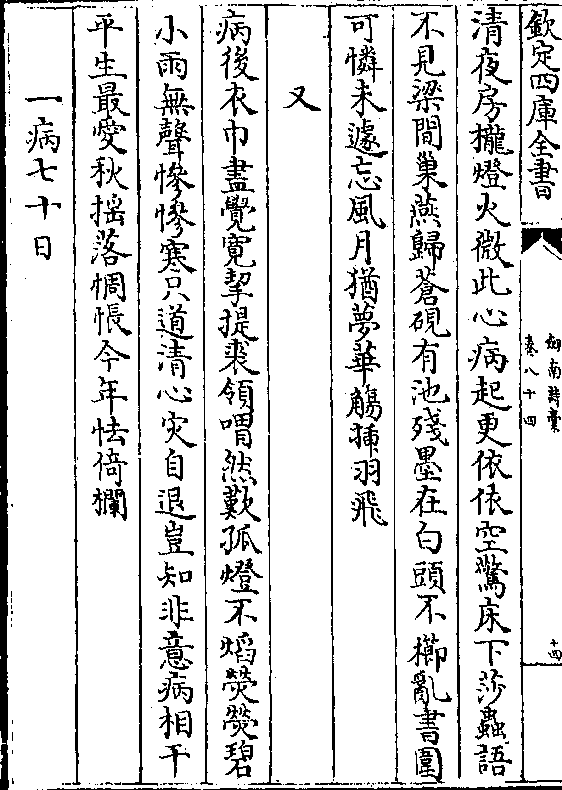 欽定四庫全書
劍南詩稾
卷八十四
十四
清夜房櫳燈火微此心病起更依依空驚床下莎蟲語
不見梁間巢燕歸蒼硯有池殘墨在白頭不櫛亂書圍
可憐未遽忘風月猶夢華觴插羽飛
又
病後衣巾盡覺寛挈提裘領喟然歎孤燈不熖熒熒碧
小雨無聲慘慘寒只道清心灾自退豈知非意病相干
平生最愛秋揺落惆悵今年怯倚欄
一病七十日